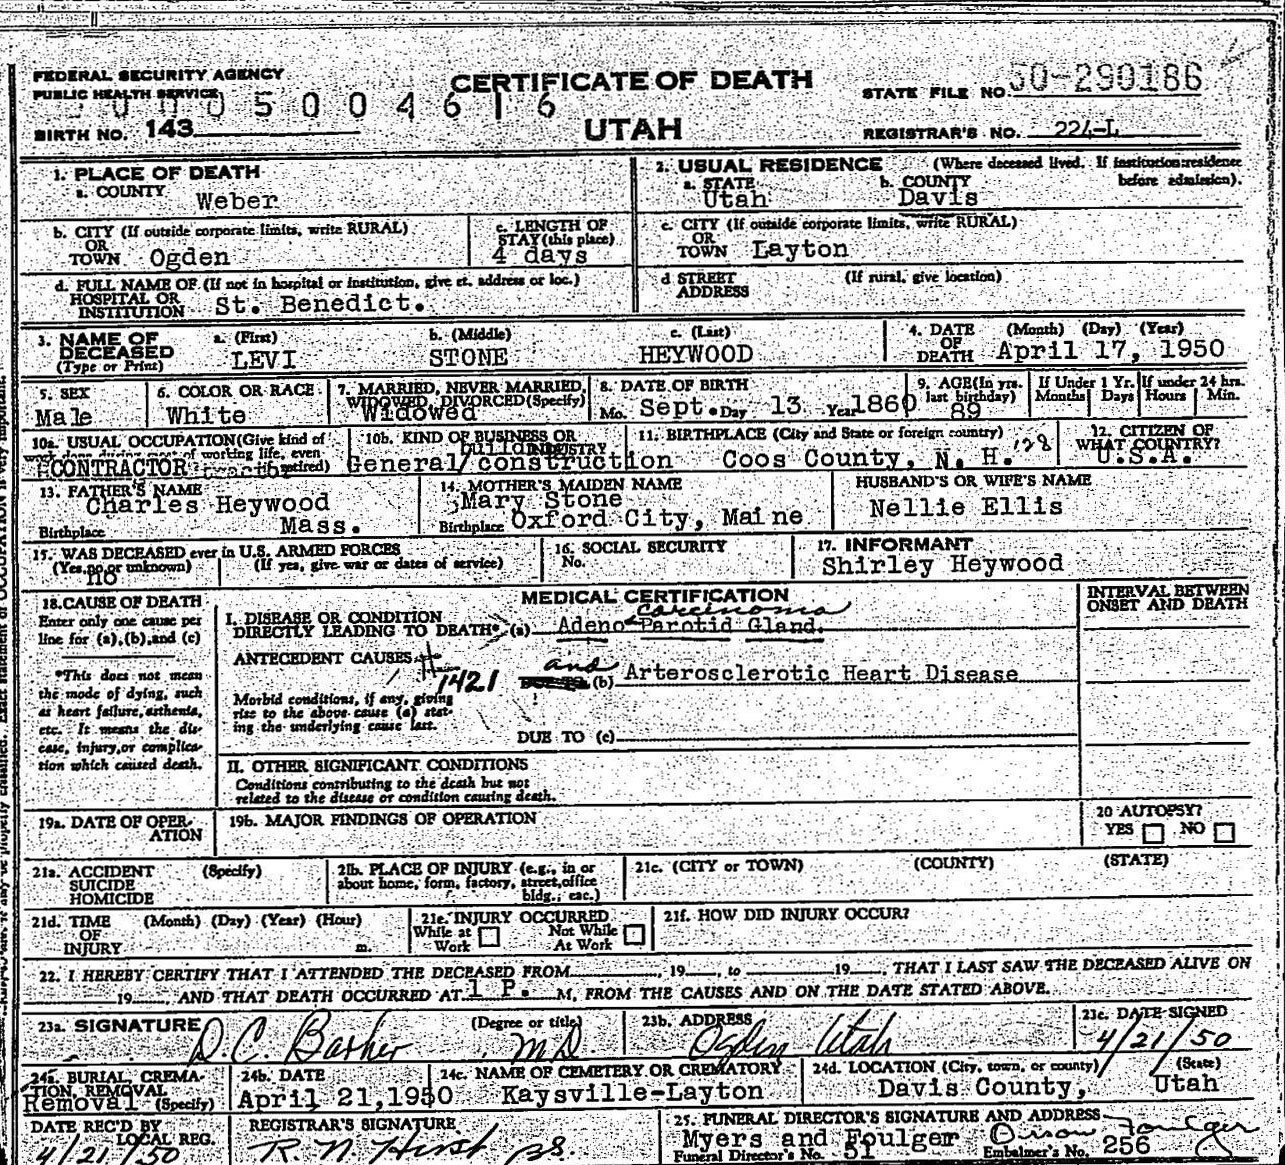 FEDERAL SECURITY AGENCY
PUBLIC HEALTH SERVICE
CERTIFICATE OF DEATH
STATE FILE NO. 50-290186
0005004616
BIRTH NO. 143
UTAH
REGISTRAR'S NO. 224-L
1. PLACE OF DEATH
a. COUNTY
Weber
2. USUAL RESIDENCE (Where deceased lived. If institution:residence before admission).
a. STATE b. COUNTY
Utah Davis
b. CITY (If outside corporate limits, write RURAL)
OR
TOWN Ogden
c. LENGTH OF
STAY (this place)
4 days
c. CITY (If outside corporate limits, write RURAL)
OR
TOWN Layton
d. FULL NAME OF (If not in hospital or institution, give st. address or loc.)
HOSPITAL OR
INSTITUTION St. Benedict.
d STREET (If rural, give location)
ADDRESS
3. NAME OF DECEASED
(Type or Print)
a. (First) b. (Middle) c. (Last)
LEVI STONE HEYWOOD
4. DATE (Month) (Day) (Year)
OF
DEATH April 17, 1950
5. SEX
Male
6. COLOR OR RACE
White
7. MARRIED, NEVER MARRIED,
WIDOWED, DIVORCED (Specify)
Widowed
8. DATE OF BIRTH
Mo. Sept. Day 13 Year 1860
9. AGE (In yrs.
last birthday)
89
If Under 1 Yr.
Months Days
If under 24 hrs.
Hours Min.
10a. USUAL OCCUPATION (Give kind of
work done during most of working life, even
CONTRACTOR retired)
10b. KIND OF BUSINESS OR
building INDUSTRY
General/construction
11. BIRTHPLACE (City and State or foreign country)
Coos County, N. H. 128
12. CITIZEN OF
WHAT COUNTRY?
U.S.A.
13. FATHER'S NAME
Charles Heywood
Birthplace Mass.
14. MOTHER'S MAIDEN NAME
Mary Stone
Birthplace Oxford City, Maine
HUSBAND'S OR WIFE'S NAME
Nellie Ellis
15. WAS DECEASED ever in U.S. ARMED FORCES
(Yes, no or unknown) (If yes, give war or dates of service)
no
16. SOCIAL SECURITY
No.
17. INFORMANT
Shirley Heywood
18. CAUSE OF DEATH
Enter only one cause per
line for (a), (b), and (c)
*This does not mean
the mode of dying, such
as heart failure, asthenia,
etc. It means the dis-
ease, injury, or complica-
tion which caused death.
MEDICAL CERTIFICATION
INTERVAL BETWEEN
ONSET AND DEATH
carcinoma
I. DISEASE OR CONDITION
DIRECTLY LEADING TO DEATH* (a) Adeno Parotid Gland.
ANTECEDENT CAUSES
1421
and
DUE TO (b) Arterosclerotic Heart Disease
Morbid conditions, if any, giving
rise to the above cause (a) stat-
ing the underlying cause last.
DUE TO (c)
II. OTHER SIGNIFICANT CONDITIONS
Conditions contributing to the death but not
related to the disease or condition causing death.
19a. DATE OF OPER-
ATION
19b. MAJOR FINDINGS OF OPERATION
20 AUTOPSY?
YES NO
21a. ACCIDENT (Specify)
SUICIDE
HOMICIDE
21b. PLACE OF INJURY (e.g., in or
about home, form, factory, street, office
bldg., eac.)
21c. (CITY or TOWN) (COUNTY) (STATE)
21d. TIME (Month) (Day) (Year) (Hour)
OF
INJURY m.
21e. INJURY OCCURRED
While at Work Not While At Work
21f. HOW DID INJURY OCCUR?
22. I HEREBY CERTIFY THAT I ATTENDED THE DECEASED FROM , 19 , to 19 , THAT I LAST SAW THE DECEASED ALIVE ON
19 , AND THAT DEATH OCCURRED AT 1 P. M, FROM THE CAUSES AND ON THE DATE STATED ABOVE.
23a. SIGNATURE (Degree or title)
D. C. Barker MD
23b. ADDRESS
Ogden Utah
23c. DATE SIGNED
4/21/50
24a. BURIAL, CREMA-
TION, REMOVAL
Removal (Specify)
24b. DATE
April 21,1950
24c. NAME OF CEMETERY OR CREMATORY
Kaysville-Layton
24d. LOCATION (City, town, or county) (State)
Davis County, Utah
DATE REC'D BY
LOCAL REG.
4/21/50
REGISTRAR'S SIGNATURE
R. N. Hirst
25. FUNERAL DIRECTOR'S SIGNATURE AND ADDRESS
Myers and Foulger Orson Foulger
Funeral Director's No. 51 Embalmer's No. 256